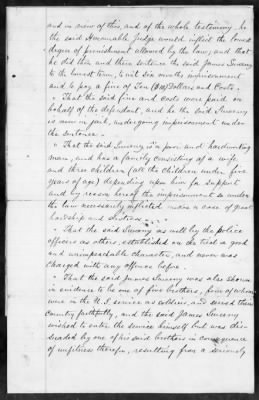 and in view of this, and of the whole testimony he
the said Honorable Judge would inflict the lowest
degree of punishment allowed by the law, and that
he did then and there sentence the said James
to the lowest term, to wit six months imprisonment
and to pay a fine of Ten ($10) Dollars and Costs.
That the said fine and costs were paid on
behalf of the defendant, and he the said
is now in jail, undergoing imprisonment under
the sentence.
That the said is a poor and hardworking
man, and has a family consisting of a wife
and three children (all the children under five
years of age) depending upon him for support
and by reason hereof the imprisonment so under
the law necessarily inflicted makes a case of great
hardship and distress.
That the said as well by the police
officers as others, established on the trial a good
and unimpeachable character, and never was
charged with any offence before.
That the said James was also shown
in evidence to be one of five brothers, four of whom
were in the U.S. service as soldiers, and served their
Country faithfully, and the said James
wished to enter the service himself but was
by one of his said brothers in consequence
of unfitness therefor, resulting from a seriously